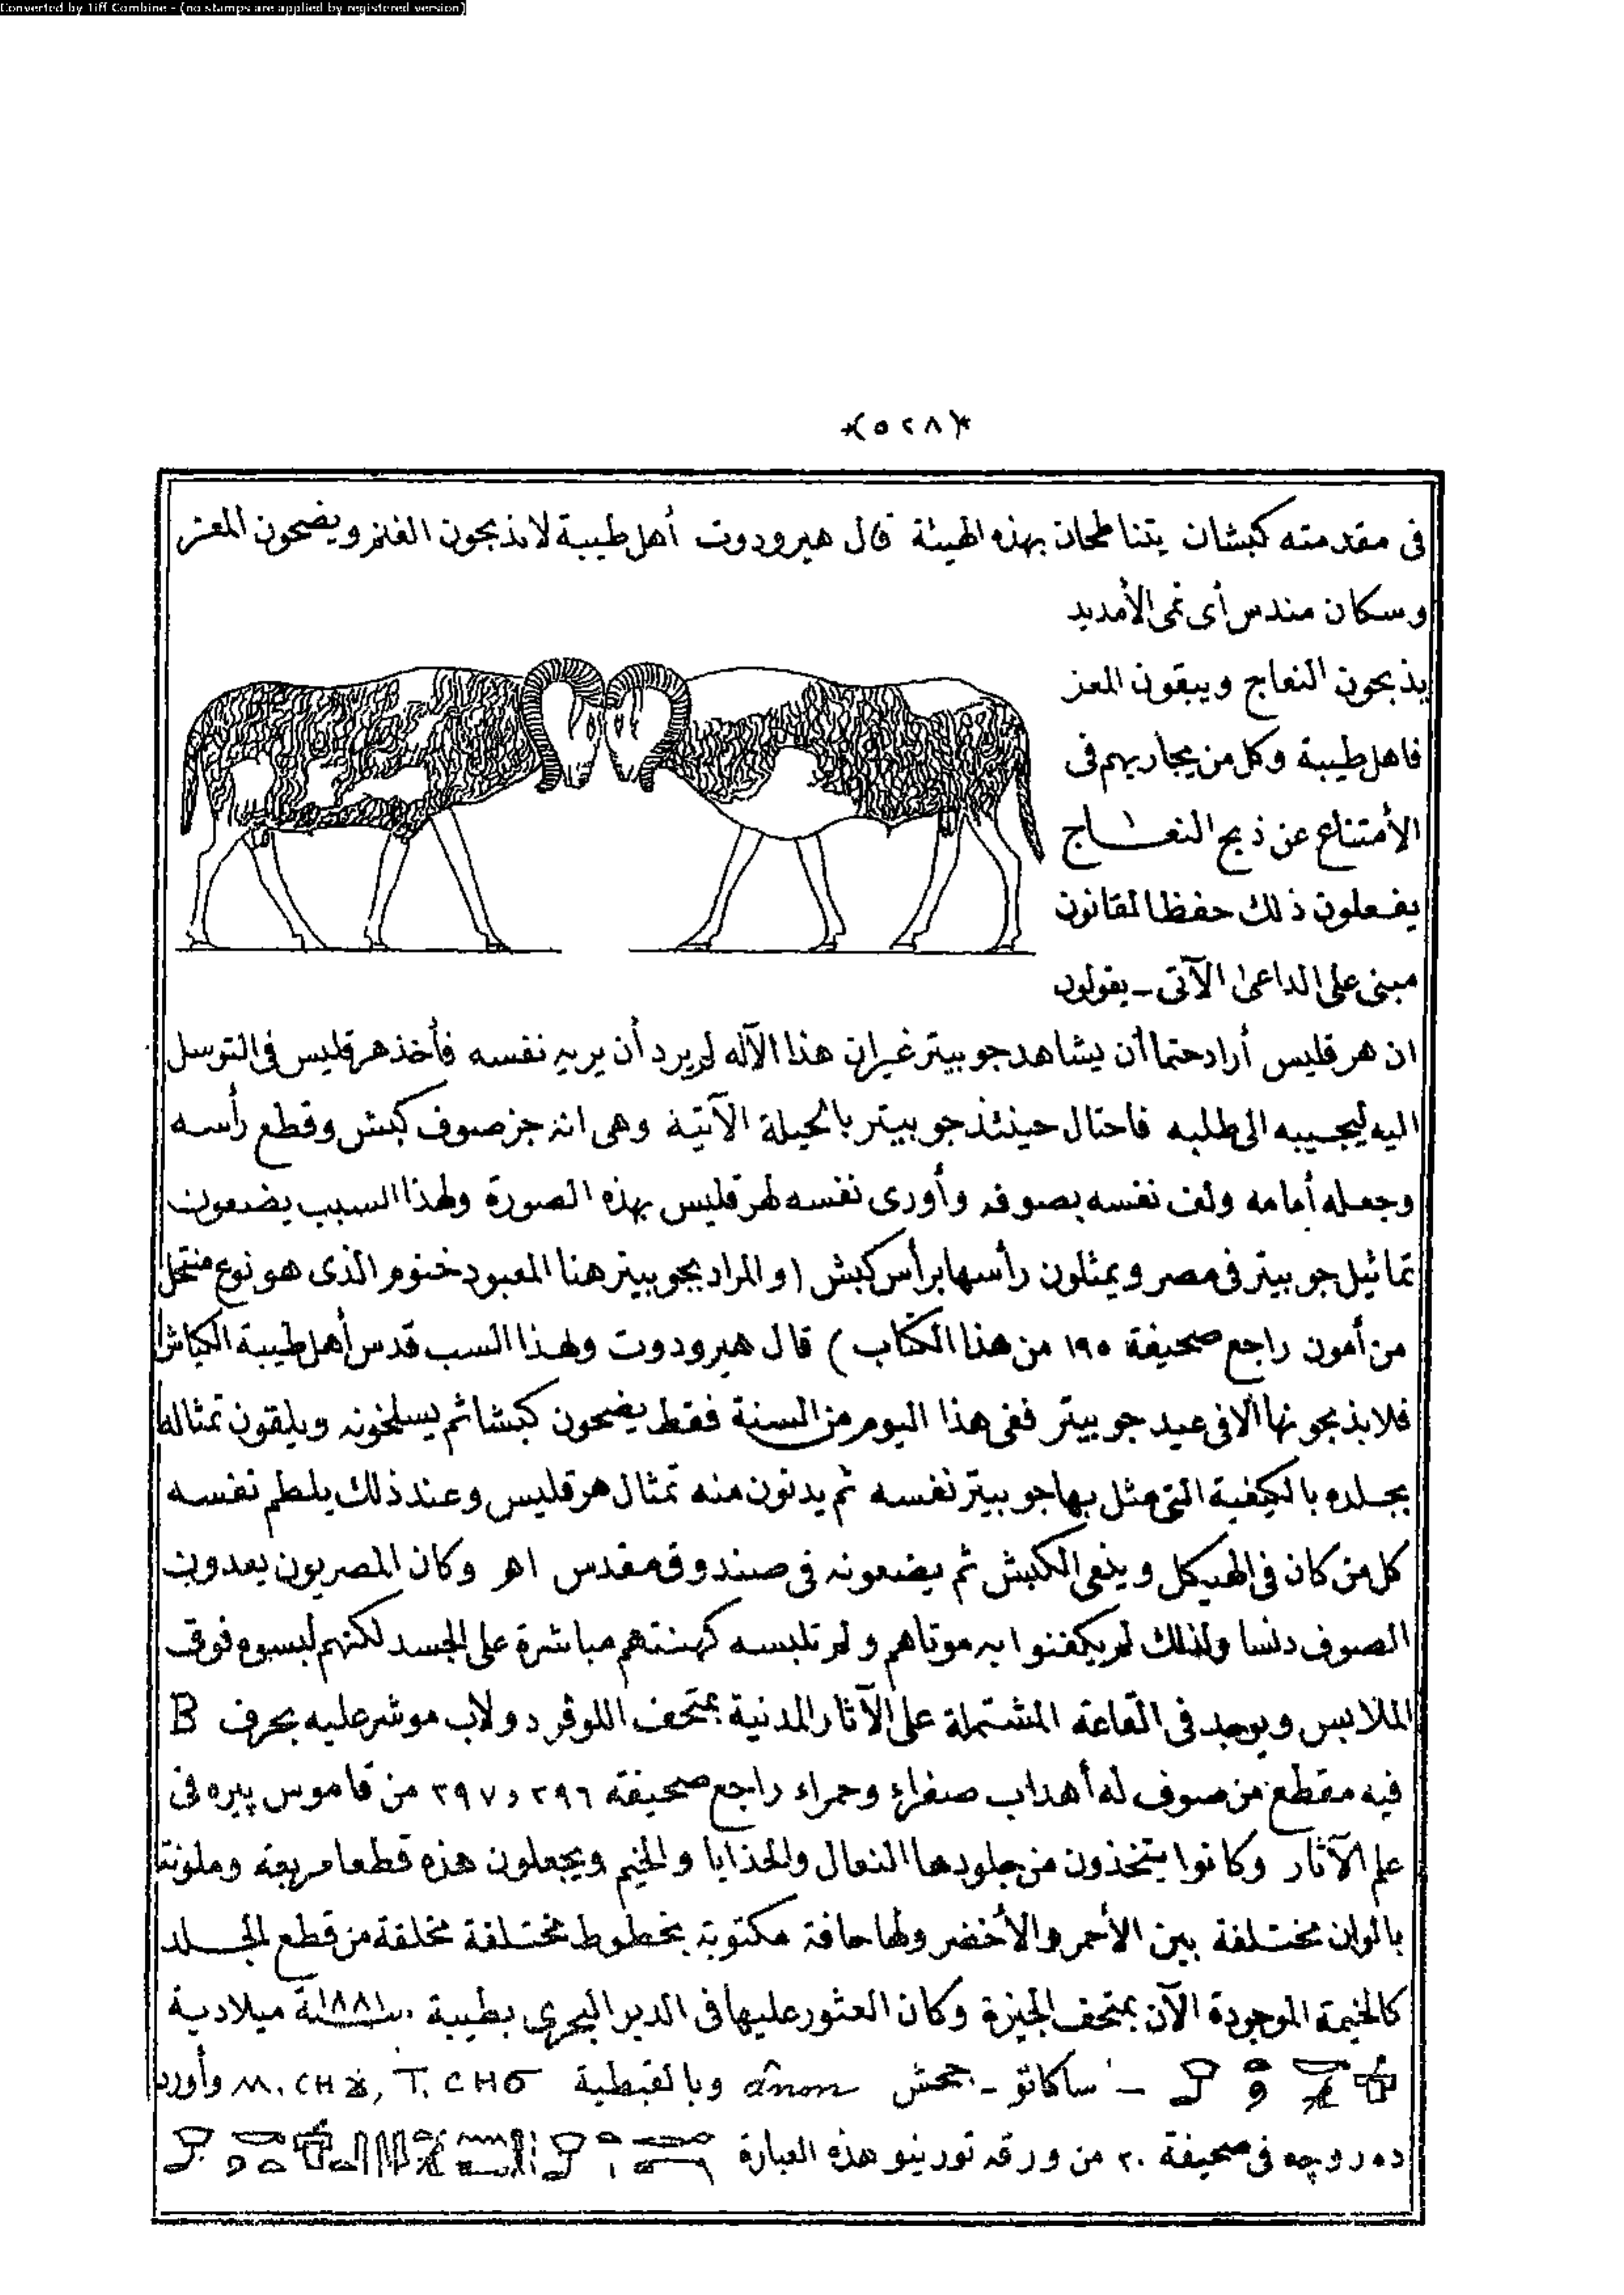 Converted by Tiff Combine - (no stamps are applied by registered version)
*(٥٢٨)*
فى مقدمته كبشان يتناطحان بهذه الهيئة قال هيرودوت أهل طيبة لا يذبحون الغنم ويضحون المعز
وسكان مندس أى تمى الأمديد
يذبحون النعاج ويبقون المعز
فاهل طيبة وكل من يجاريهم فى
الأمتناع عن ذبح النعاج
يفعلون ذلك حفظا لقانون
مبنى على الداعى الآتى - يقولون
ان هرقليس أراد حتما أن يشاهد جوبيتر غير ان هذا الآله لم يرد أن يريه نفسه فأخذ هرقليس فى التوسل
اليه ليجيبه الى طلبه فاحتال حينئذ جوبيتر بالحيلة الآتية وهى انه جز صوف كبش وقطع رأسه
وجعله أمامه ولف نفسه بصوفه وأورى نفسه لهرقليس بهذه الصورة ولهذا السبب يضعون
تماثيل جوبيتر فى مصر ويمثلون رأسها برأس كبش (والمراد بجوبيتر هنا المعبود خنوم الذى هو نوع منتحل
من أمون راجع صحيفة ١٩٥ من هذا الكتاب) قال هيرودوت ولهذا السبب قدس أهل طيبة الكباش
فلا يذبحونها الا فى عيد جوبيتر ففى هذا اليوم من السنة فقط يضحون كبشا ثم يسلخونه ويلقون تمثاله
بجلده بالكيفية التى مثل بها جوبيتر نفسه ثم يدنون منه تمثال هرقليس وعند ذلك يلطم نفسه
كل من كان فى الهيكل وينعى الكبش ثم يضعونه فى صندوق مقدس اهر وكان المصريون يعدون
الصوف دنسا ولذلك لم يكفنوا به موتاهم ولم تلبسه كهنتهم مباشرة على الجسد لكنهم لبسوه فوق
الملابس ويوجد فى القاعة المشتملة على الآثار المدنية بمتحف اللوڤر دولاب موشر عليه بحرف B
فيه مقطع من صوف له أهداب صفراء وحمراء راجع صحيفة ٣٩٦ و ٣٩٧ من قاموس پيره فى
علم الآثار وكانوا يتخذون من جلودها النعال والحذايا والخيم ويجعلون هذه قطعا مربعة وملونة
بالوان مختلفة بين الأحمر والأخضر ولها حافة مكتوبة بخطوط مختلفة مخلقة من قطع الجلد
كالخيمة الموجودة الآن بمتحف الجيزة وكان العثور عليها فى الدير البحرى بطيبة سنة ١٨٨١ ميلادية
- ساكاتو - جحش ânon وبالقبطية M. CHϪ, T. CHϬ وأورد
ده روچه فى صحيفة ٢٠ من ورقه تورينو هذه العبارة